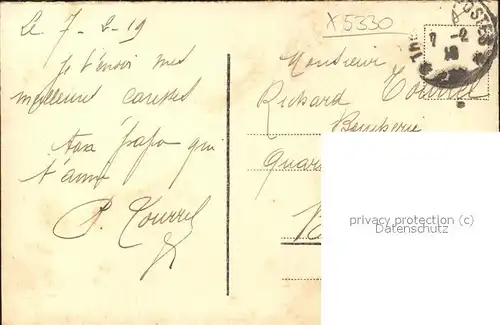 Le 7-2-19
Je t'envoi mes
meilleures caresses
Ton papa qui
t'aime
P. Tourrel
X5330
Monsieur
Richard Tourrel
Quar
POSTES
7 -2
19
privacy protection (c)
Datenschutz